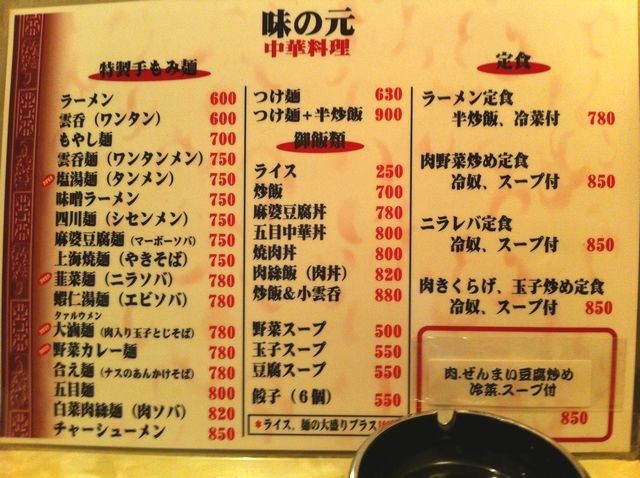 味の元
中華料理
特製手もみ麺
ラーメン 600
雲呑（ワンタン） 600
もやし麺 700
雲呑麺（ワンタンメン） 750
塩湯麺（タンメン） 750
味噌ラーメン 750
四川麺（シセンメン） 750
麻婆豆腐麺（マーボーソバ） 750
上海焼麺（やきそば） 750
韮菜麺（ニラソバ） 780
蝦仁湯麺（エビソバ） 780
タァルウメン
大滷麺（肉入り玉子とじそば） 780
野菜カレー麺 780
合え麺（ナスのあんかけそば） 780
五目麺 800
白菜肉絲麺（肉ソバ） 820
チャーシューメン 850
つけ麺 630
つけ麺＋半炒飯 900
御飯類
ライス 250
炒飯 700
麻婆豆腐丼 780
五目中華丼 800
焼肉丼 800
肉絲飯（肉丼） 820
炒飯＆小雲呑 880
野菜スープ 500
玉子スープ 550
豆腐スープ 550
餃子（6個） 550
＊ライス、麺の大盛りプラス
定食
ラーメン定食
半炒飯、冷菜付 780
肉野菜炒め定食
冷奴、スープ付 850
ニラレバ定食
冷奴、スープ付 850
肉きくらげ、玉子炒め定食
冷奴、スープ付 850
肉.ぜんまい豆腐炒め
冷菜.スープ付
850